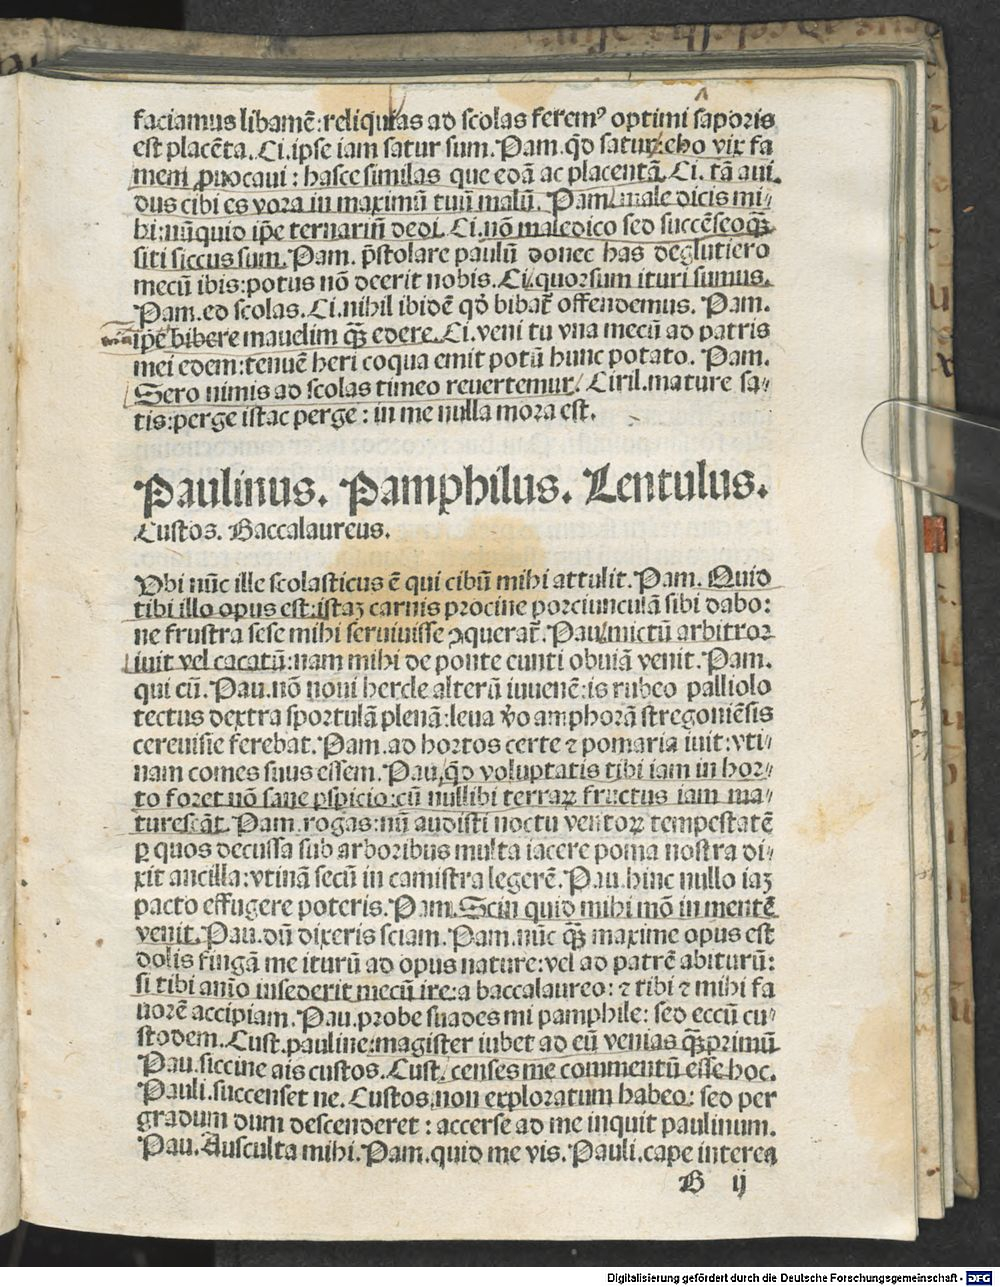 faciamus libamē:reliquias ad scolas feremꝰ optimi saporis
est placēta. Ci.ipse iam satur sum. Pam.qď satur:eho vix fa
mem ꝓuocaui : hasce similas que edā ac placentā. Ci. tā aui
dus cibi es vora in maximū tuū malū. Pam. male dicis mi⸗
hi:nūquid ip̄e ternariū dedi. Ci.nō maledico sed succēseo qꝫ
siti siccus sum. Pam. p̄stolare paulū donec has deglutiero
mecū ibis:potus nō deerit nobis. Ci.quorsum ituri sumus.
Pam.ed scolas. Ci.nihil ibidē qď bibat᷑ offendemus. Pam.
ip̄e bibere mauelim qꝫ̄ edere. Ci.veni tu vna mecū ad patris
mei edem:tenuē heri coqua emit potū hunc potato. Pam.
Sero nimis ad scolas timeo reuertemur. Ciril.mature sa⸗
tis:perge istac perge : in me nulla mora est.
Paulinus. Pamphilus. Lentulus.
Custos. Baccalaureus.
Vbi nūc ille scolasticus ē qui cibū mihi attulit. Pam. Quid
tibi illo opus est:istaꝫ carnis procine porciunculā sibi dabo:
ne frustra sese mihi seruiuisse ꝯquerat᷑. Pau.mictū arbitror
iuit vel cacatū:nam mihi de ponte cunti obuiā venit. Pam.
qui cū. Pau.nō noui hercle alterū iuuenē:is rubeo palliolo
tectus dextra sportulā plenā:leua v̊o amphorā stregoniēsis
cereuisie ferebat. Pam.ad hortos certe ⁊ pomaria iuit:vti⸗
nam comes suus essem. Pau.qď voluptatis tibi iam in hor⸗
to foret nō sane ꝑspicio:cū nullibi terraꝝ fructus iam ma⸗
turescāt. Pam.rogas:nū audisti noctu ventoꝝ tempestatē
ꝑ quos decussa sub arboribus multa iacere poma nostra di⸗
xit ancilla:vtinā secū in camistra legerē. Pau.hinc nullo iaꝫ
pacto effugere poteris. Pam.Scin quid mihi mō in mentē
venit. Pau.dū dixeris sciam. Pam.nūc qꝫ̄ maxime opus est
dolis fingā me iturū ad opus nature:vel ad patrē abiturū:
si tibi anīo insederit mecū ire:a baccalaureo: ⁊ tibi ⁊ mihi fa
uorē accipiam. Pau.probe suades mi pamphile: sed eccū cu⸗
stodem. Cust.pauline:magister iubet ad eū venias qꝫ̄primū
Pau.siccine ais custos. Cust. censes me commentū esse hoc.
Pauli.succenset ne. Custos.non exploratum habeo: sed per
gradum dum descenderet : accerse ad me inquit paulinum.
Pau.Ausculta mihi. Pam.quid me vis. Pauli.cape interea
B ij
Digitalisierung gefördert durch die Deutsche Forschungsgemeinschaft - DFG